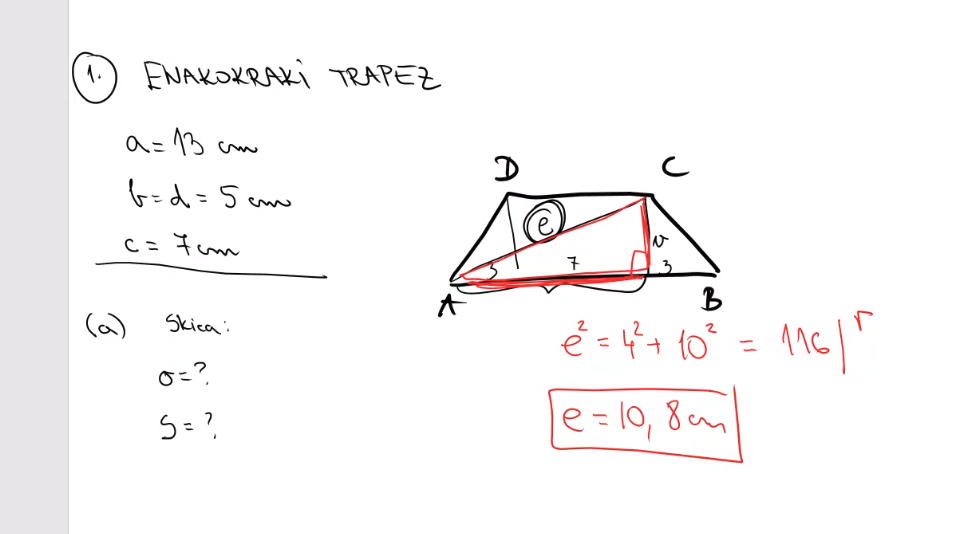 1. ENAKOKRAKI TRAPEZ
a = 13 cm
b = d = 5 cm
c = 7 cm
(a) Skica:
o = ?
S = ?
D C
e
v
3 7 3
A B
e² = 4² + 10² = 116 /
e = 10,8 cm